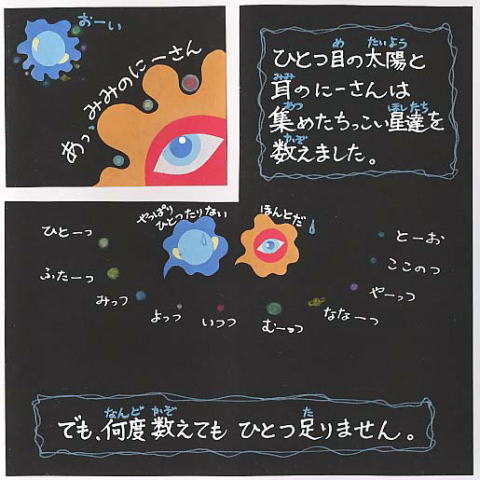 おーい
あっ、みみのにーさん
ひとつ目の太陽と
耳のにーさんは
集めたちっこい星達を
数えました。
やっぱり
ひとつたりない
ほんとだ
ひとーっ
ふたーっ
みっつ
よっつ
いつつ
むーっつ
ななーっ
やーっつ
ここのつ
とーお
でも、何度数えても ひとつ足りません。